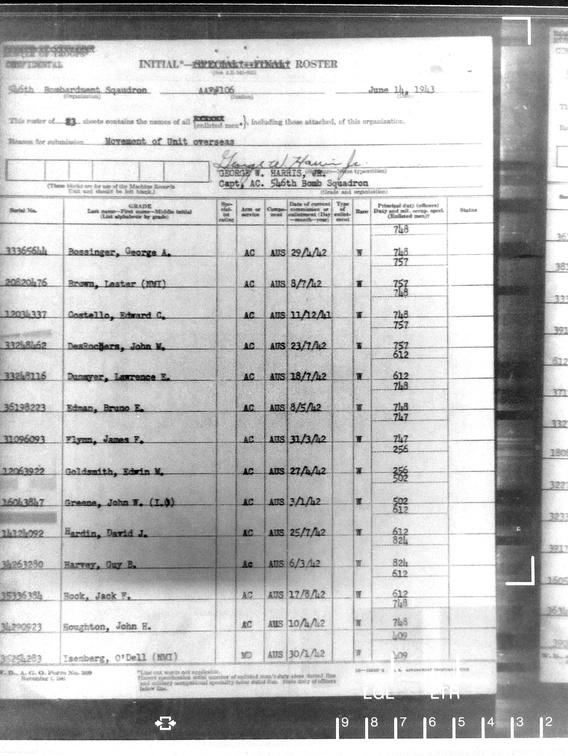 CONFIDENTIAL
INITIAL*—SPECIAL*—FINAL* ROSTER
546th Bombardment Squadron AAF#106 June 14, 1943
(Organization) (Station) (Date)
This roster of 83 sheets contains the names of all (enlisted men*), including those attached, of this organization.
Reason for submission Movement of Unit overseas
George W. Harris, Jr.
GEORGE W. HARRIS, JR.
Capt, AC. 546th Bomb Squadron
(These blanks are for use of the Machine Records Unit and should be left blank.) (Grade and organization)
Serial No. GRADE Last name—First name—Middle initial (List alphabetically by grade) Arm or service Date of current commission or enlistment (Day—month—year) Type of enlistment Race Principal duty (officers) Duty and mil. occup. spec. (Enlisted men)† Status
748
33365644 Bossinger, George A. AC AUS 29/4/42 W 748
757
20820476 Brown, Lester (NMI) AC AUS 8/7/42 W 757
748
12034337 Costello, Edward C. AC AUS 11/12/41 W 748
757
33248462 DesRochers, John M. AC AUS 23/7/42 W 757
612
33248116 Dunayer, Lawrence E. AC AUS 18/7/42 W 612
748
36198223 Edman, Bruno E. AC AUS 8/5/42 W 748
747
31096093 Flynn, James F. AC AUS 31/3/42 W 747
256
12063922 Goldsmith, Edwin M. AC AUS 27/4/42 W 256
502
16043847 Greene, John W. (I.O) AC AUS 3/1/42 W 502
612
14124092 Hardin, David J. AC AUS 25/7/42 W 612
824
34263280 Harvey, Guy B. Ac AUS 6/3/42 W 824
612
35336384 Hook, Jack F. AC AUS 17/8/42 W 612
748
34290923 Houghton, John H. AC AUS 10/4/42 W 748
409
35254283 Isenberg, O'Dell (NMI) MD AUS 30/1/42 W 409
W. D., A. G. O. Form No.
9 8 7 6 5 4 3 2